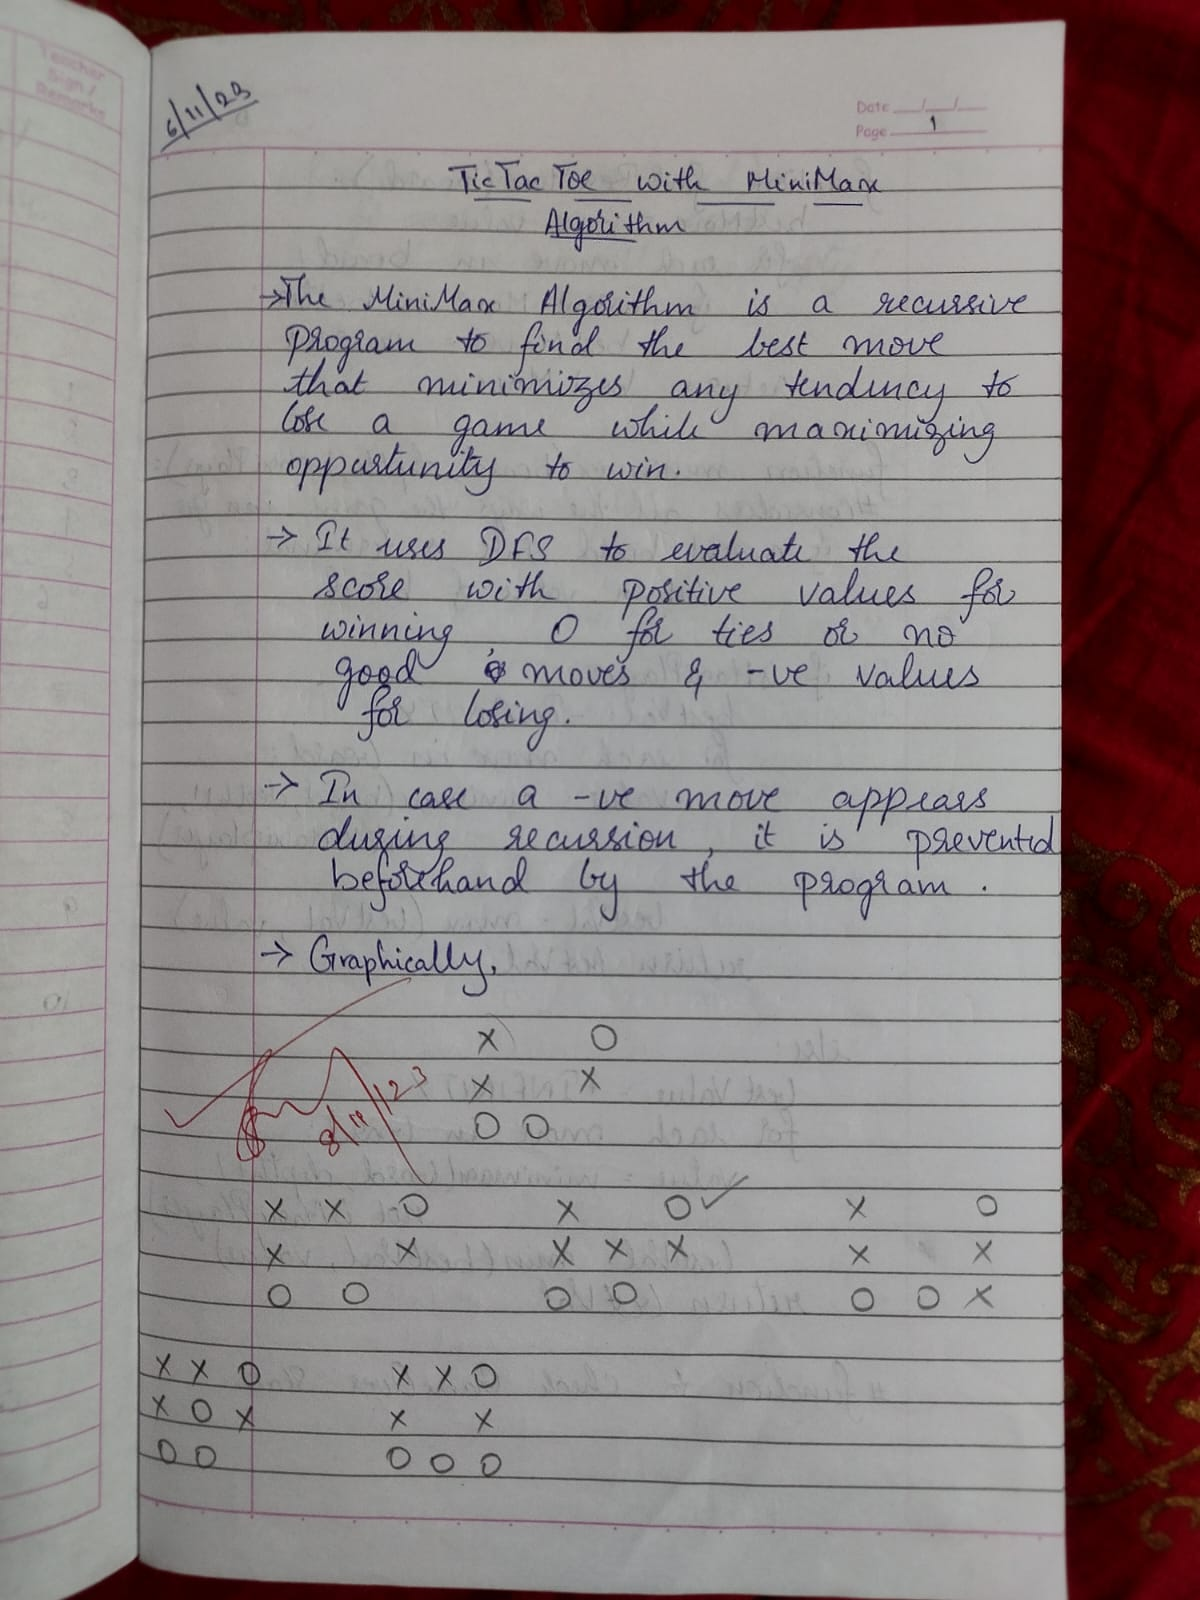 Teacher
Sign /
Remarks
6/11/23
Date __/__/__
Page 1
TicTacToe with MiniMax
Algorithm
→The MiniMax Algorithm is a recursive
program to find the best move
that minimizes any tendency to
lose a game while maximizing
opportunity to win.
→ It uses DFS to evaluate the
score with positive values for
winning, 0 for ties or no
good moves & -ve values
for losing.
→ In case a -ve move appears
during recursion, it is prevented
beforehand by the program.
→ Graphically,
X O
X X
O O
8/11/23
X X O X O ✓ X O
X X X X X X X
O O O O O O X
X X O X X O
X O X X X
O O O O O